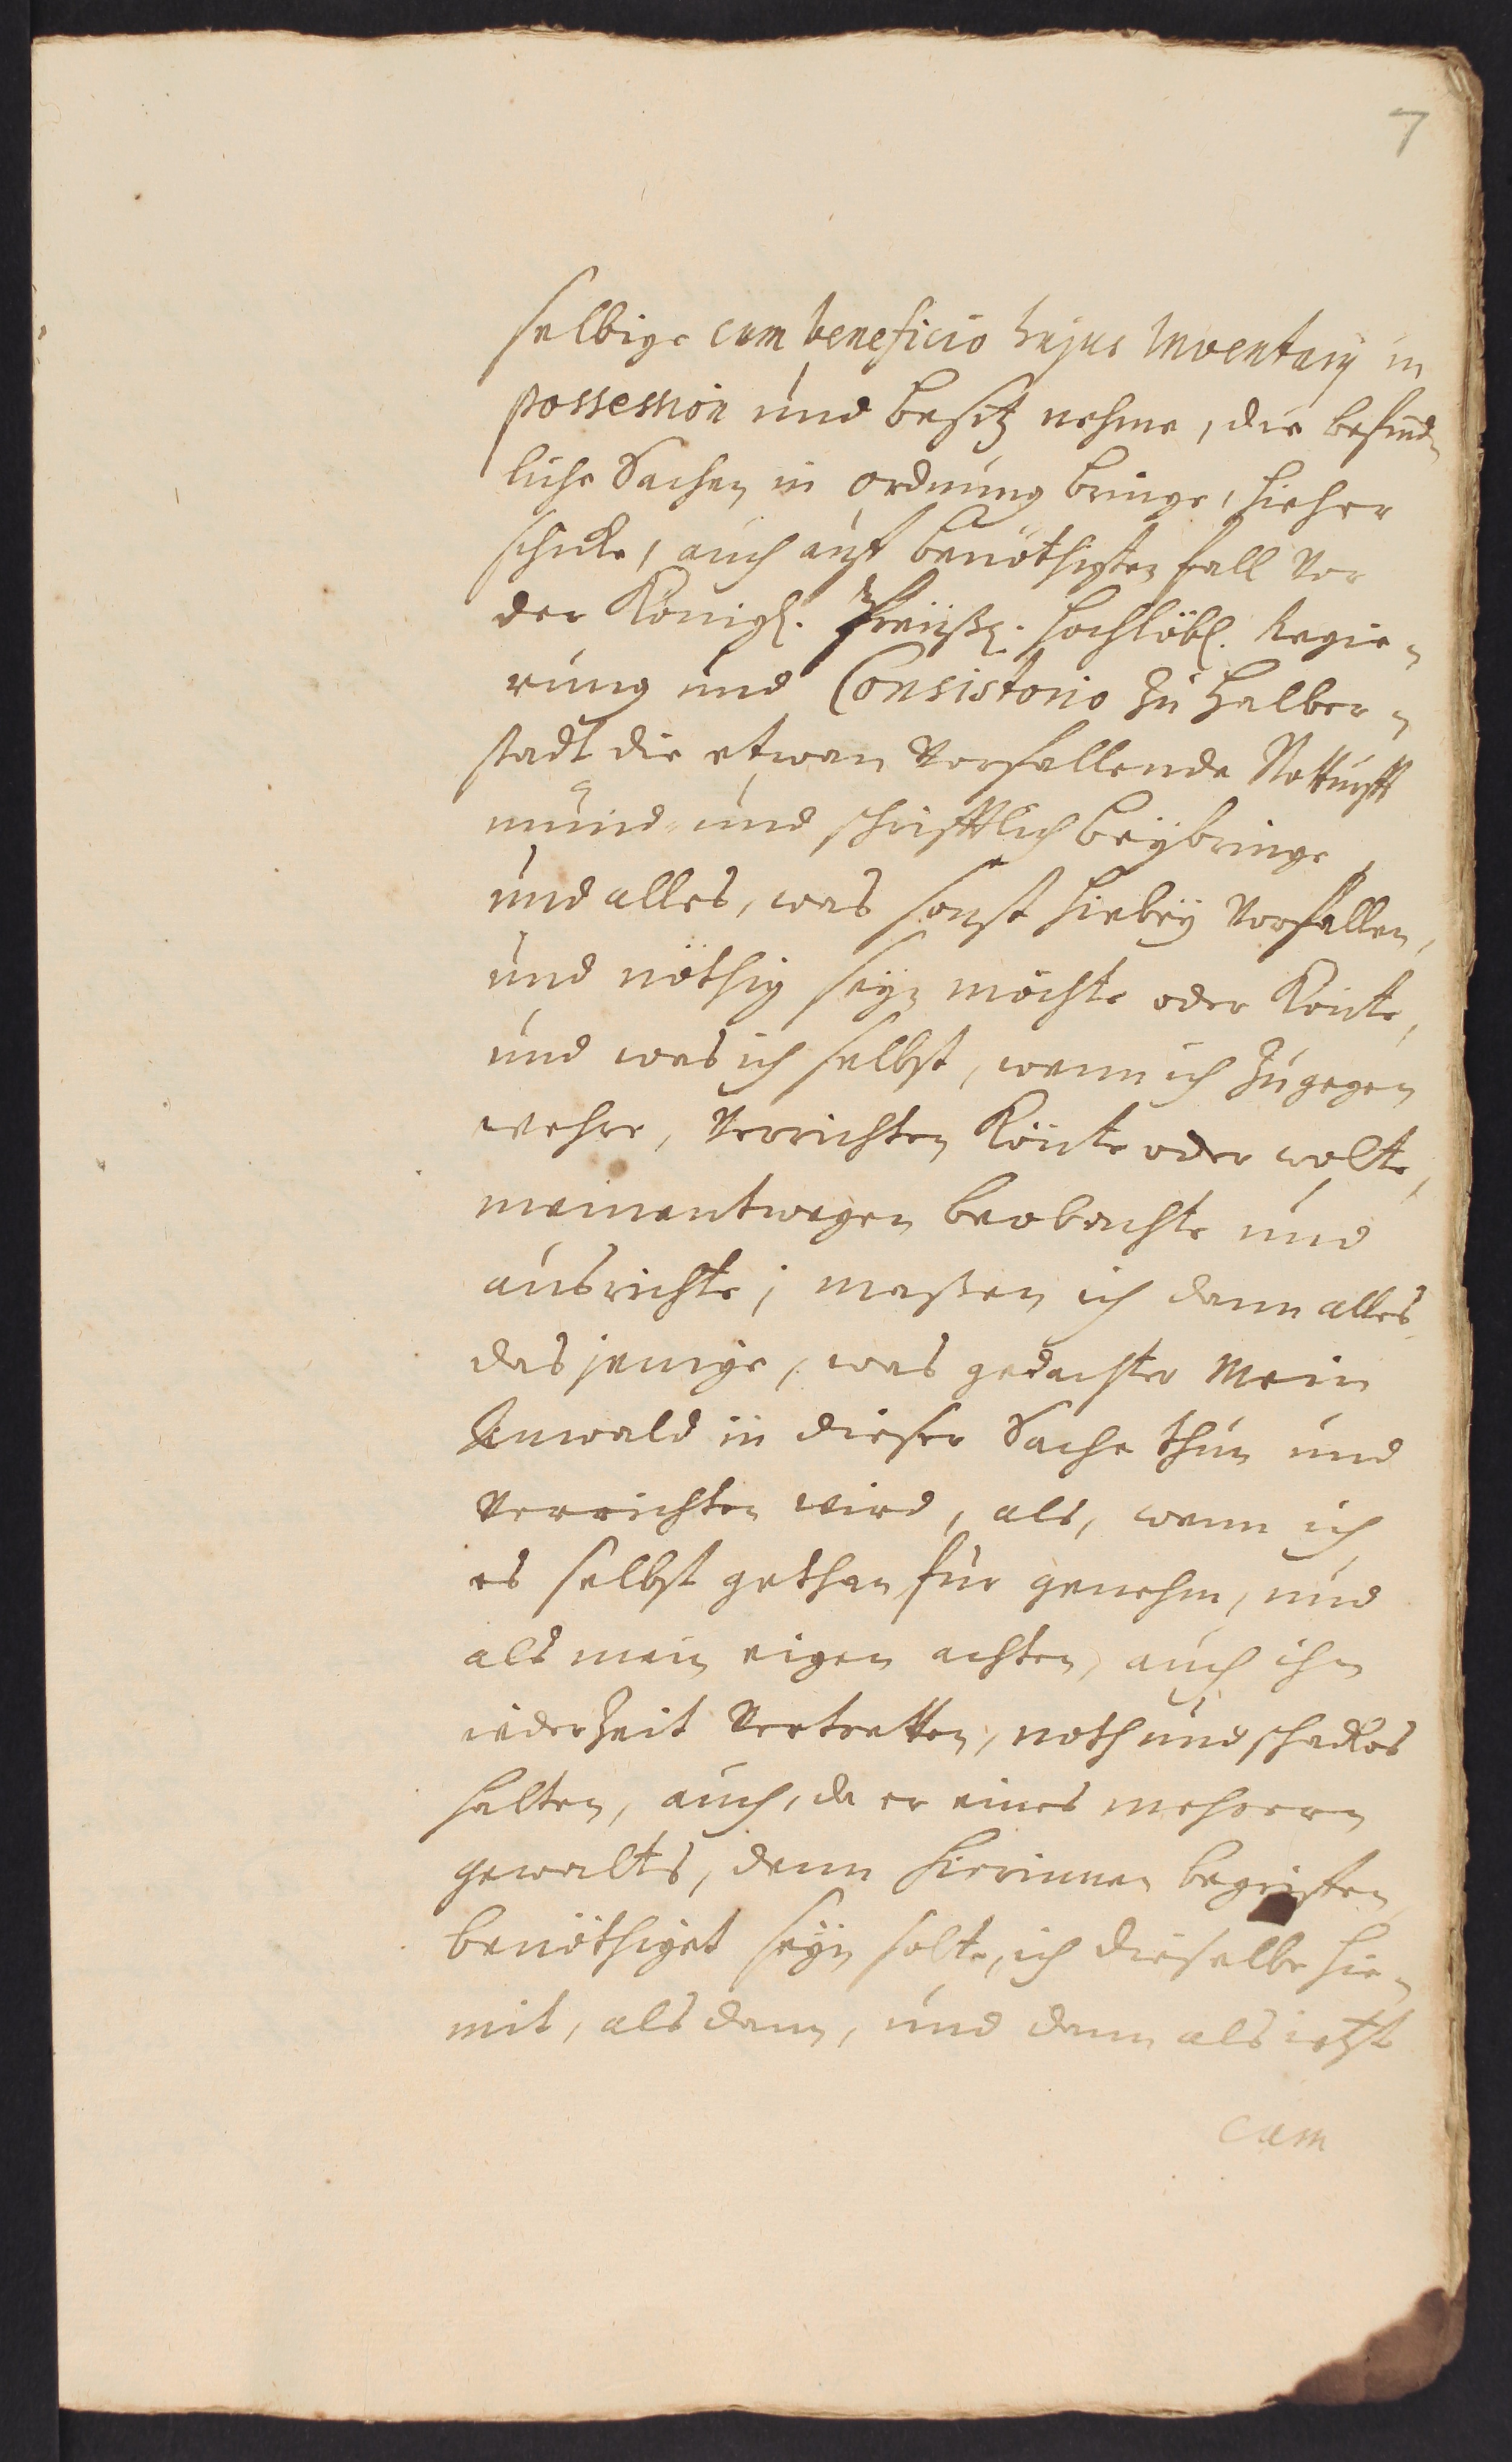 7
selbige cum beneficio hujus Inventarij in
possession und besitz nehme, die befind-
liche Sachen in ordnung bringe, hieher
schicke, auch auf benöthigten fall vor
der Königl. Preüßl. hochlöbl. Regie-
rung und Consistorio zu Halber-
stadt die etwan vorfallende Notturfft
mund- und schrifftlich beybringe,
und alles, was sonst hiebey vorfallen,
und nöthig seyn möchte oder könte,
und was ich selbst, wenn ich zugegen
wehre, verrichten könte oder wolte,
meinentwegen beobachte und
ausrichte; maßen ich dann alles
dasjenige, was gedachter Mein
Anwald in dieser Sache thun und
verrichten wird, als, wenn ich
es selbst gethan für genehm, und
als mein eigen achten, auch ihn
iederzeit vertretten, noth und schadlos
halten, auch, da er eines mehrern
gewalts, denn hierinnen begriffen
benöthiget seyn solte, ich dieselbe hie-
mit, als dann, und dann als ietzt
cum